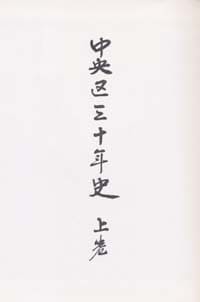 中央区三十年史 上巻